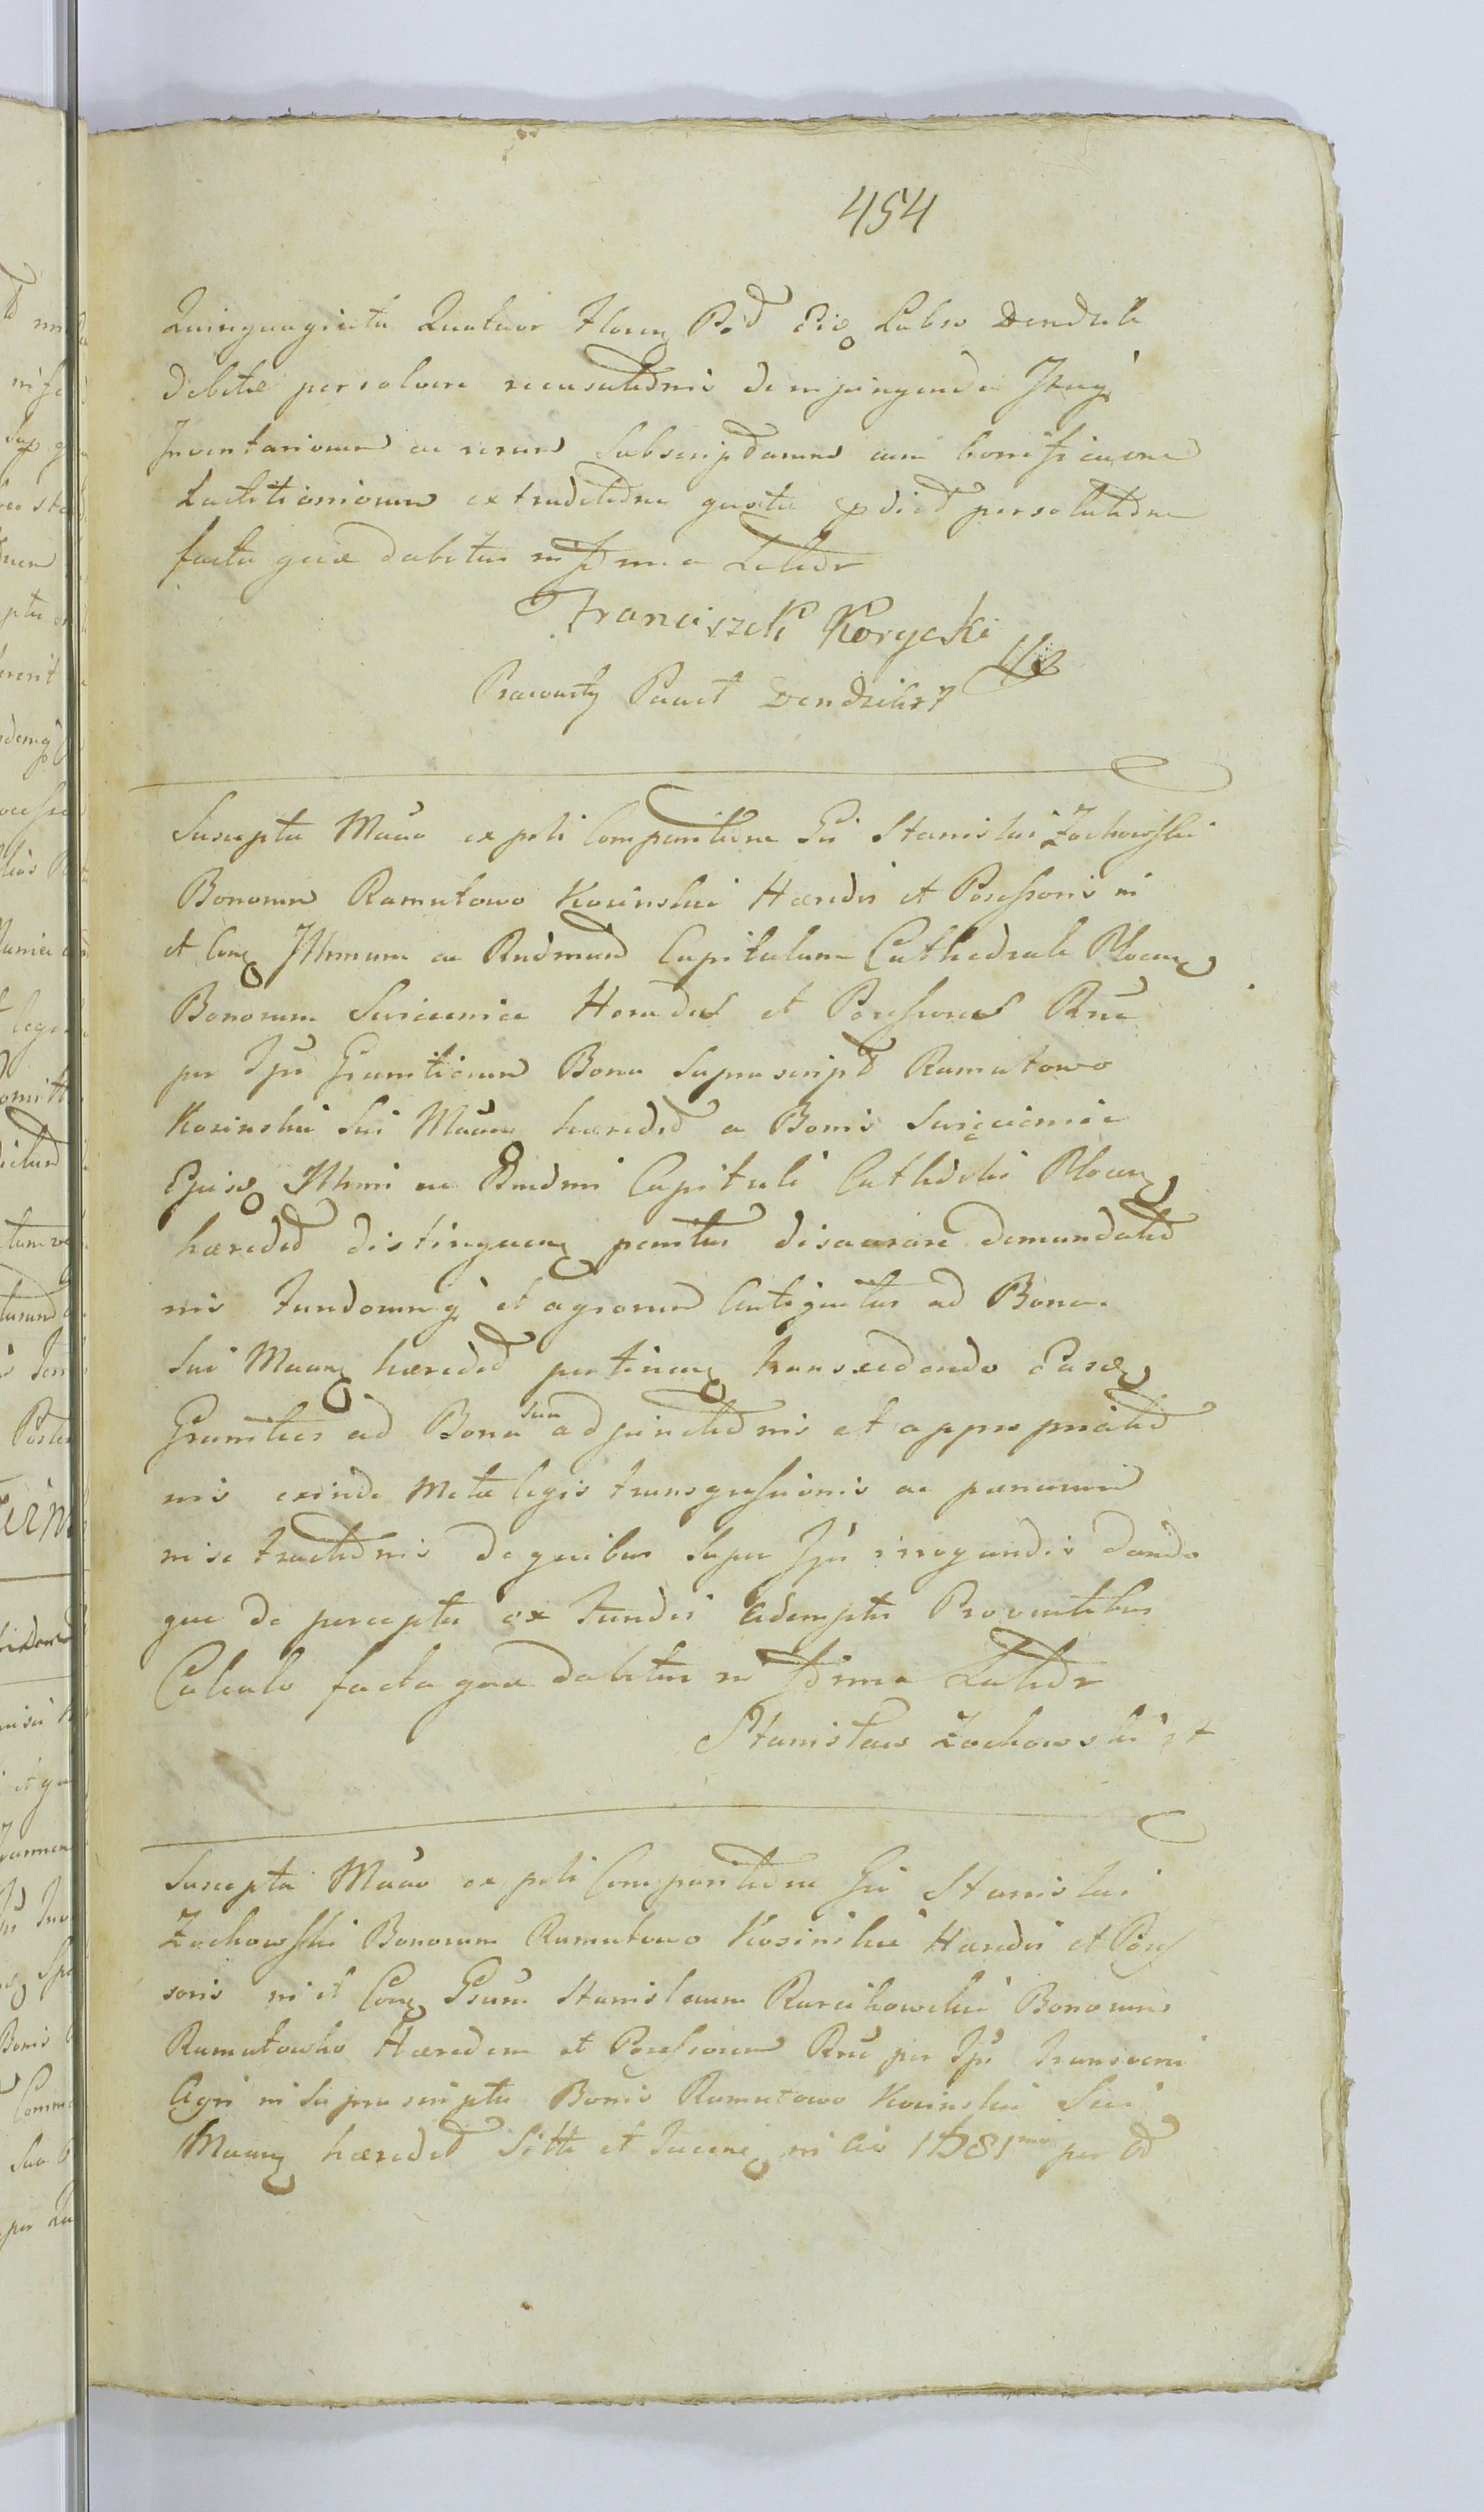 454
Quinquaginta Quatuor Floren Pod Eis Labso Dendzile
debitae persolvere recusatidnis de mpingenda Itaq
Inventariorum ac rerum Subscripdarum cum bonificaone
Lactitioniorum extraditidne quota pdicd persolutidne
facta quae dabitur in Pdmma Latidr
Franciszek Korycki
Pacuit Dendzilist
Suscepta Mãao ex prli Comparitidne Gsi Stanislai Zochowski
Bonorum Ramutowo Kosinskie Haeredis et Possessoris in
et Con Illmum ac Rndmum Capitulum Cathedrale Plocen
Bonorum Swiecenice Haeredes et Possessores Rne
per Ips Granitierum Bona Suprascripd Ramutowo
Kosinskie Sui Maan haeredid a Bonis Święcienice
Ejusd Illmi ac Rndmi Capituli Cathedlis Plocen
haeredid distinguen penitus disaarare demandatid
nis Fundorumq et agrorum Antiquitus ad Bona
Sui Maan haeredid pertinen transcedendo Easd
Granities ad Bona sua adjunctidnis et appropriatid
nis exinde Metae legis transgressionis ac paenarum
in se tractidnis de quibus Super Ips irrogandis dando
que de perceptis ex Fundis Ademptis Proventibus
Calculo facta quae dabitur in Pdmma Latidr
Stanisław Zochowski
Suscepta Mãao ex prli Comparitidne Gsi Stanislai
Zochowski Bonorum Ramutowo Kosinskie Haeredis et Posses
soris in et Con Gsum Stanislaum Rurcikowski Bonorum
Ramutowko Haeredem et Possessorem Rne per Ips Transversi
Agri in Suprascriptis Bonis Ramutowo Kosinskie Sui
Maan haeredid Sitti et Jacen in Ao 1781mo per Od